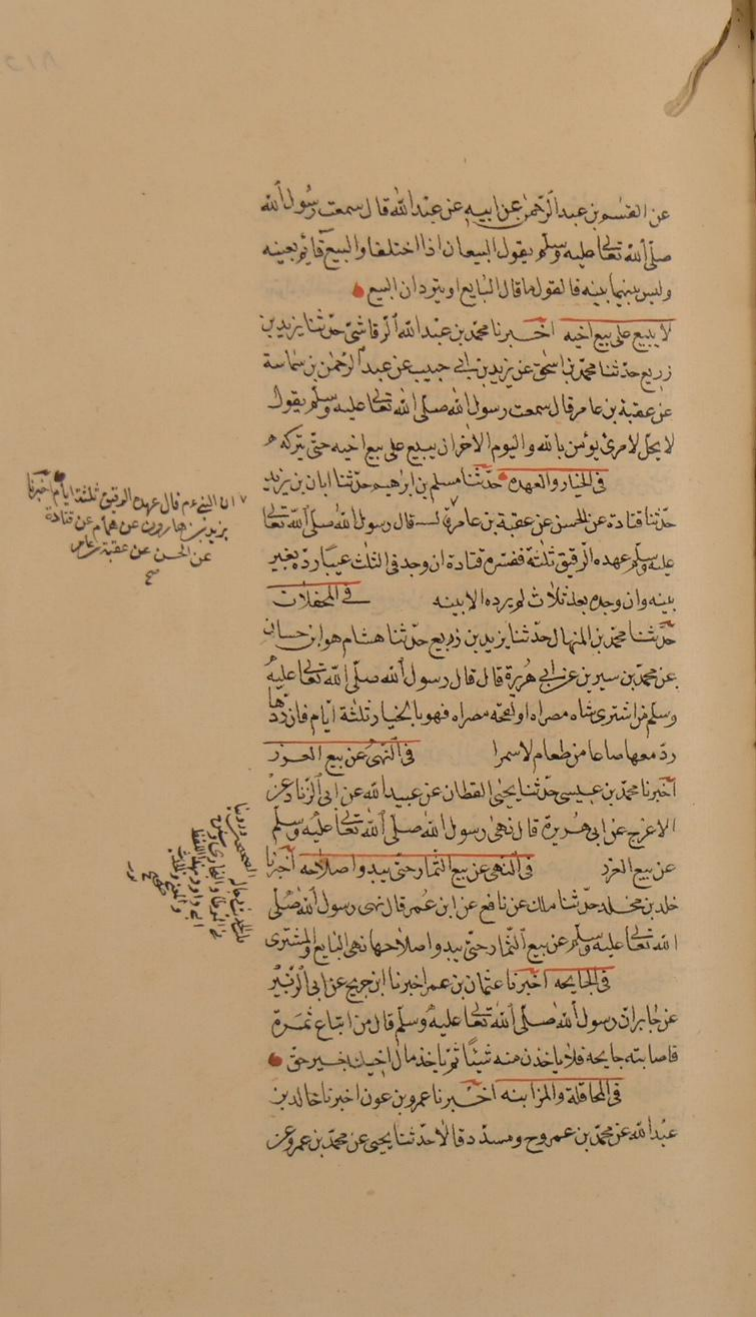 عن القسم بن عبد الرحمن عن ابيه عن عبد الله قال سمعت رسول الله
صلى الله تعالى عليه وسلم يقول البيعان اذا اختلفا والبيع قائم بعينه
وليس بينهما بينه فالقول ما قال البايع او يترادان البيع
لا يبيع على بيع اخيه اخبرنا محمد بن عبد الله الرقاشي حدثنا يزيد بن
زريع حدثنا محمد بن اسحق عن يزيد بن ابي حبيب عن عبد الرحمن بن شماسة
عن عقبة بن عامر قال سمعت رسول الله صلى الله تعالى عليه وسلم يقول
لا يحل لامرئ يؤمن بالله واليوم الاخر ان يبيع على بيع اخيه حتى يتركه
في الخيار والعهده حدثنا مسلم بن ابرهيم حدثنا ابان بن يزيد
حدثنا قتادة عن الحسن عن عقبة بن عامر قال رسول الله صلى الله تعالى
عليه وسلم عهده الرقيق ثلثة ففسره قتادة ان وجد في الثلث عيبا رده بغير
بينه وان وجده بعد ثلاث لم يرده الا ببينه في المحفلات
حدثنا محمد بن المنهال حدثنا يزيد بن زريع حدثنا هشام هو ابن حسان
عن محمد بن سيرين عن ابي هريرة قال قال رسول الله صلى الله تعالى عليه
وسلم من اشترى شاه مصراه او لقحه مصراه فهو بالخيار ثلثة ايام فان ردها
رد معها صاعا من طعام لا سمرا في النهى عن بيع الغرر
اخبرنا محمد بن عيسى حدثنا يحيى القطان عن عبيد الله عن ابي الزناد عن
الاعرج عن ابي هريرة قال نهى رسول الله صلى الله تعالى عليه وسلم
عن بيع الغرر في النهى عن بيع الثمار حتى يبدوا صلاحه اخبرنا
خلد بن مخلد حدثنا ملك عن نافع عن ابن عمر قال نهى رسول الله صلى
الله تعالى عليه وسلم عن بيع الثمار حتى يبدوا صلاحها نهى البايع والمشترى
في الجايحه اخبرنا عثمان بن عمر اخبرنا ابن جريج عن ابي الزبير
عن جابر ان رسول الله صلى الله تعالى عليه وسلم قال من ابتاع ثمرة
فاصابته جايحه فلا ياخذن منه شيئا ثم ياخذ مال اخيك بغير حق
في المحاقلة والمزابنه اخبرنا عمرو بن عون اخبرنا خالد بن
عبد الله عن محمد بن عمرو ح ومسدد قالا حدثنا يحيى عن محمد بن عمرو عن
ان النبي عم قال عهدة الرقيق ثلثة ايام اخبرنا
يزيد بن هارون عن همام عن قتادة
عن الحسن عن عقبة بن عامر
صح